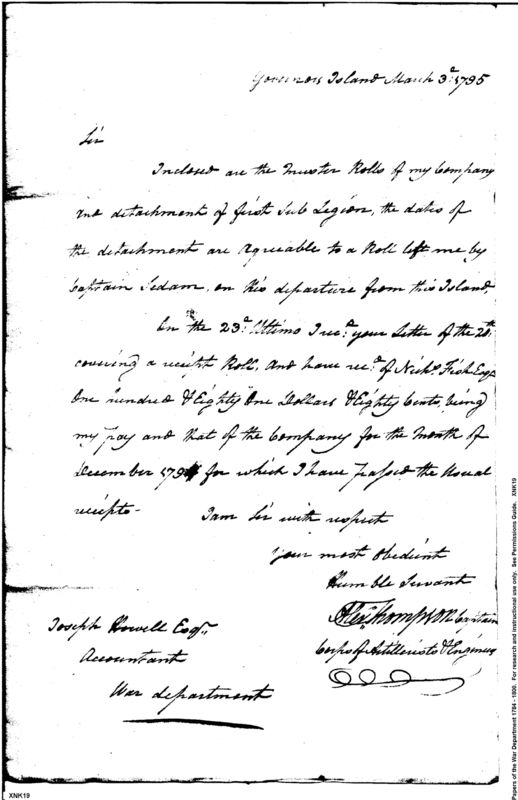 Governors Island March 3d. 1795
Sir
Inclosed are the Muster Rolls of my Company
and detachment of first Sub Legion, the dates of
the detachment are agreeable to a Roll left me by
Captain Sedam, on his departure from this Island.
On the 23d. Ultimo I recd. your Letter of the 20th.
covering a receipt Roll, and have recd. of Nichs. Fish Esqr.
One hundred & Eighty One Dollars & Eighty Cents, being
my pay and that of the Company for the Month of
December 1794 for which I have passed the Usual
receipts-
I am Sir with respect
your most Obedient
Humble Servant
Alexr. Thompson Captain
Corps of Artillerists & Engineers
Joseph Howell Esqr.
Accountant
War department
XNK19
Papers of the War Department 1784 - 1800. For research and instructional use only. See Permissions Guide. XNK19